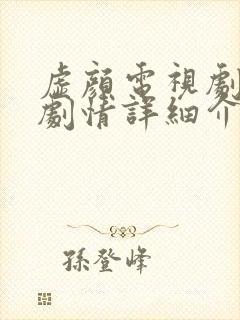 虛顏電視劇
劇情詳細介
孫登峰